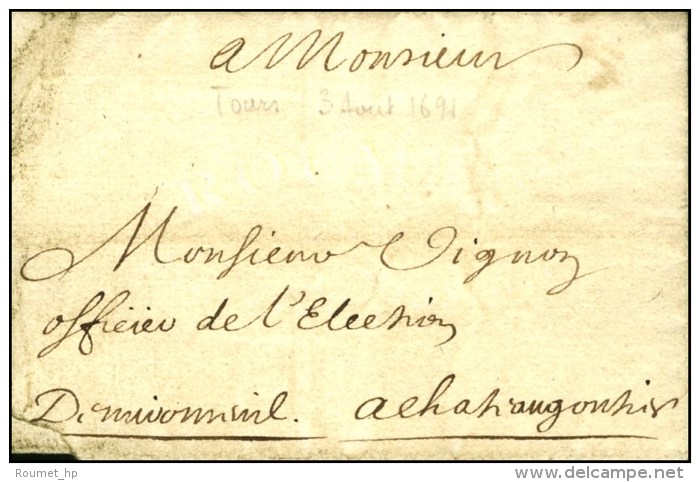 a Monsieur
Tours 3 Aout 1691
Monsieur Vignon
officier de l'Election
achateaugontier
Roumet_hp
www.delcampe.net